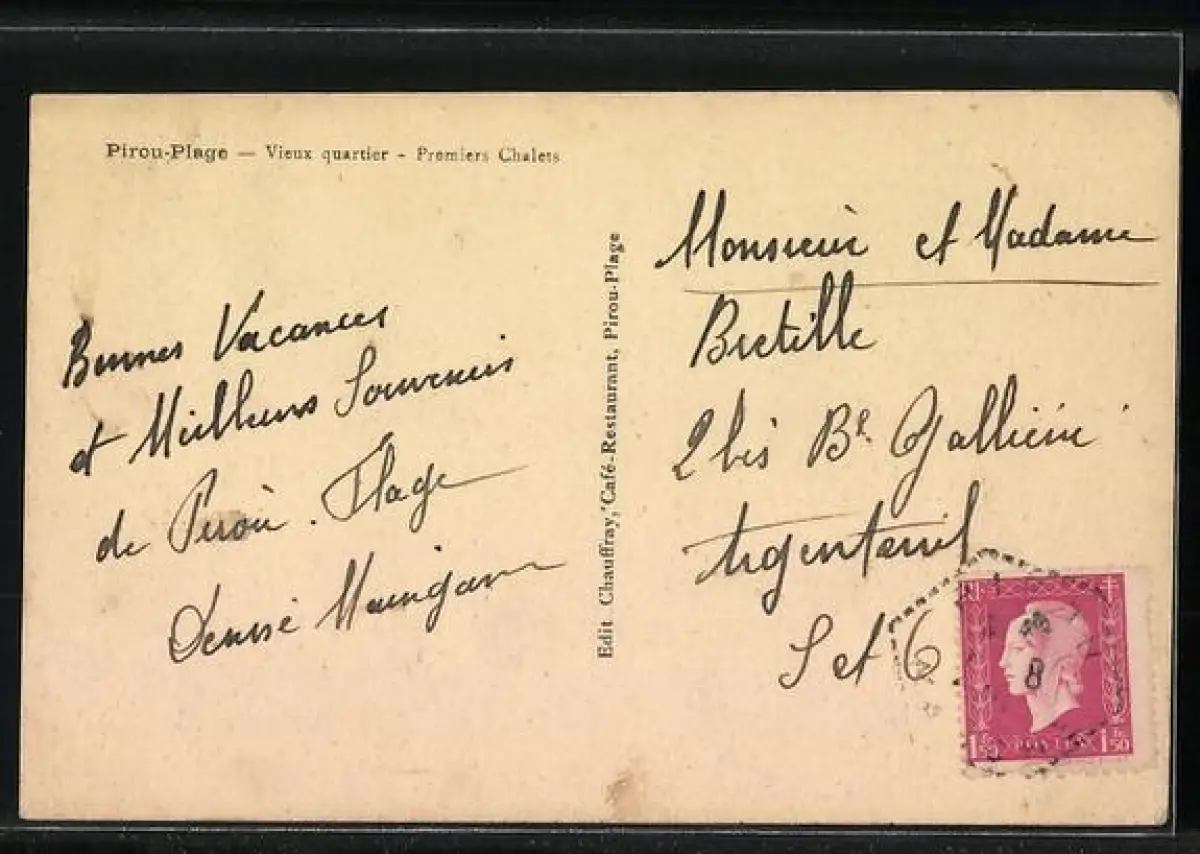 Pirou-Plage — Vieux quartier - Premiers Chalets
Bonnes Vacances
et Meilleurs Souvenirs
de Pirou-Plage
Denise
Edit Chauffray, Café-Restaurant, Pirou-Plage
Monsieur et Madame
Bretille
2 bis Bd Galliéni
Argenteuil
S et O
8
1 Fr. 50 POSTES 1 Fr. 50